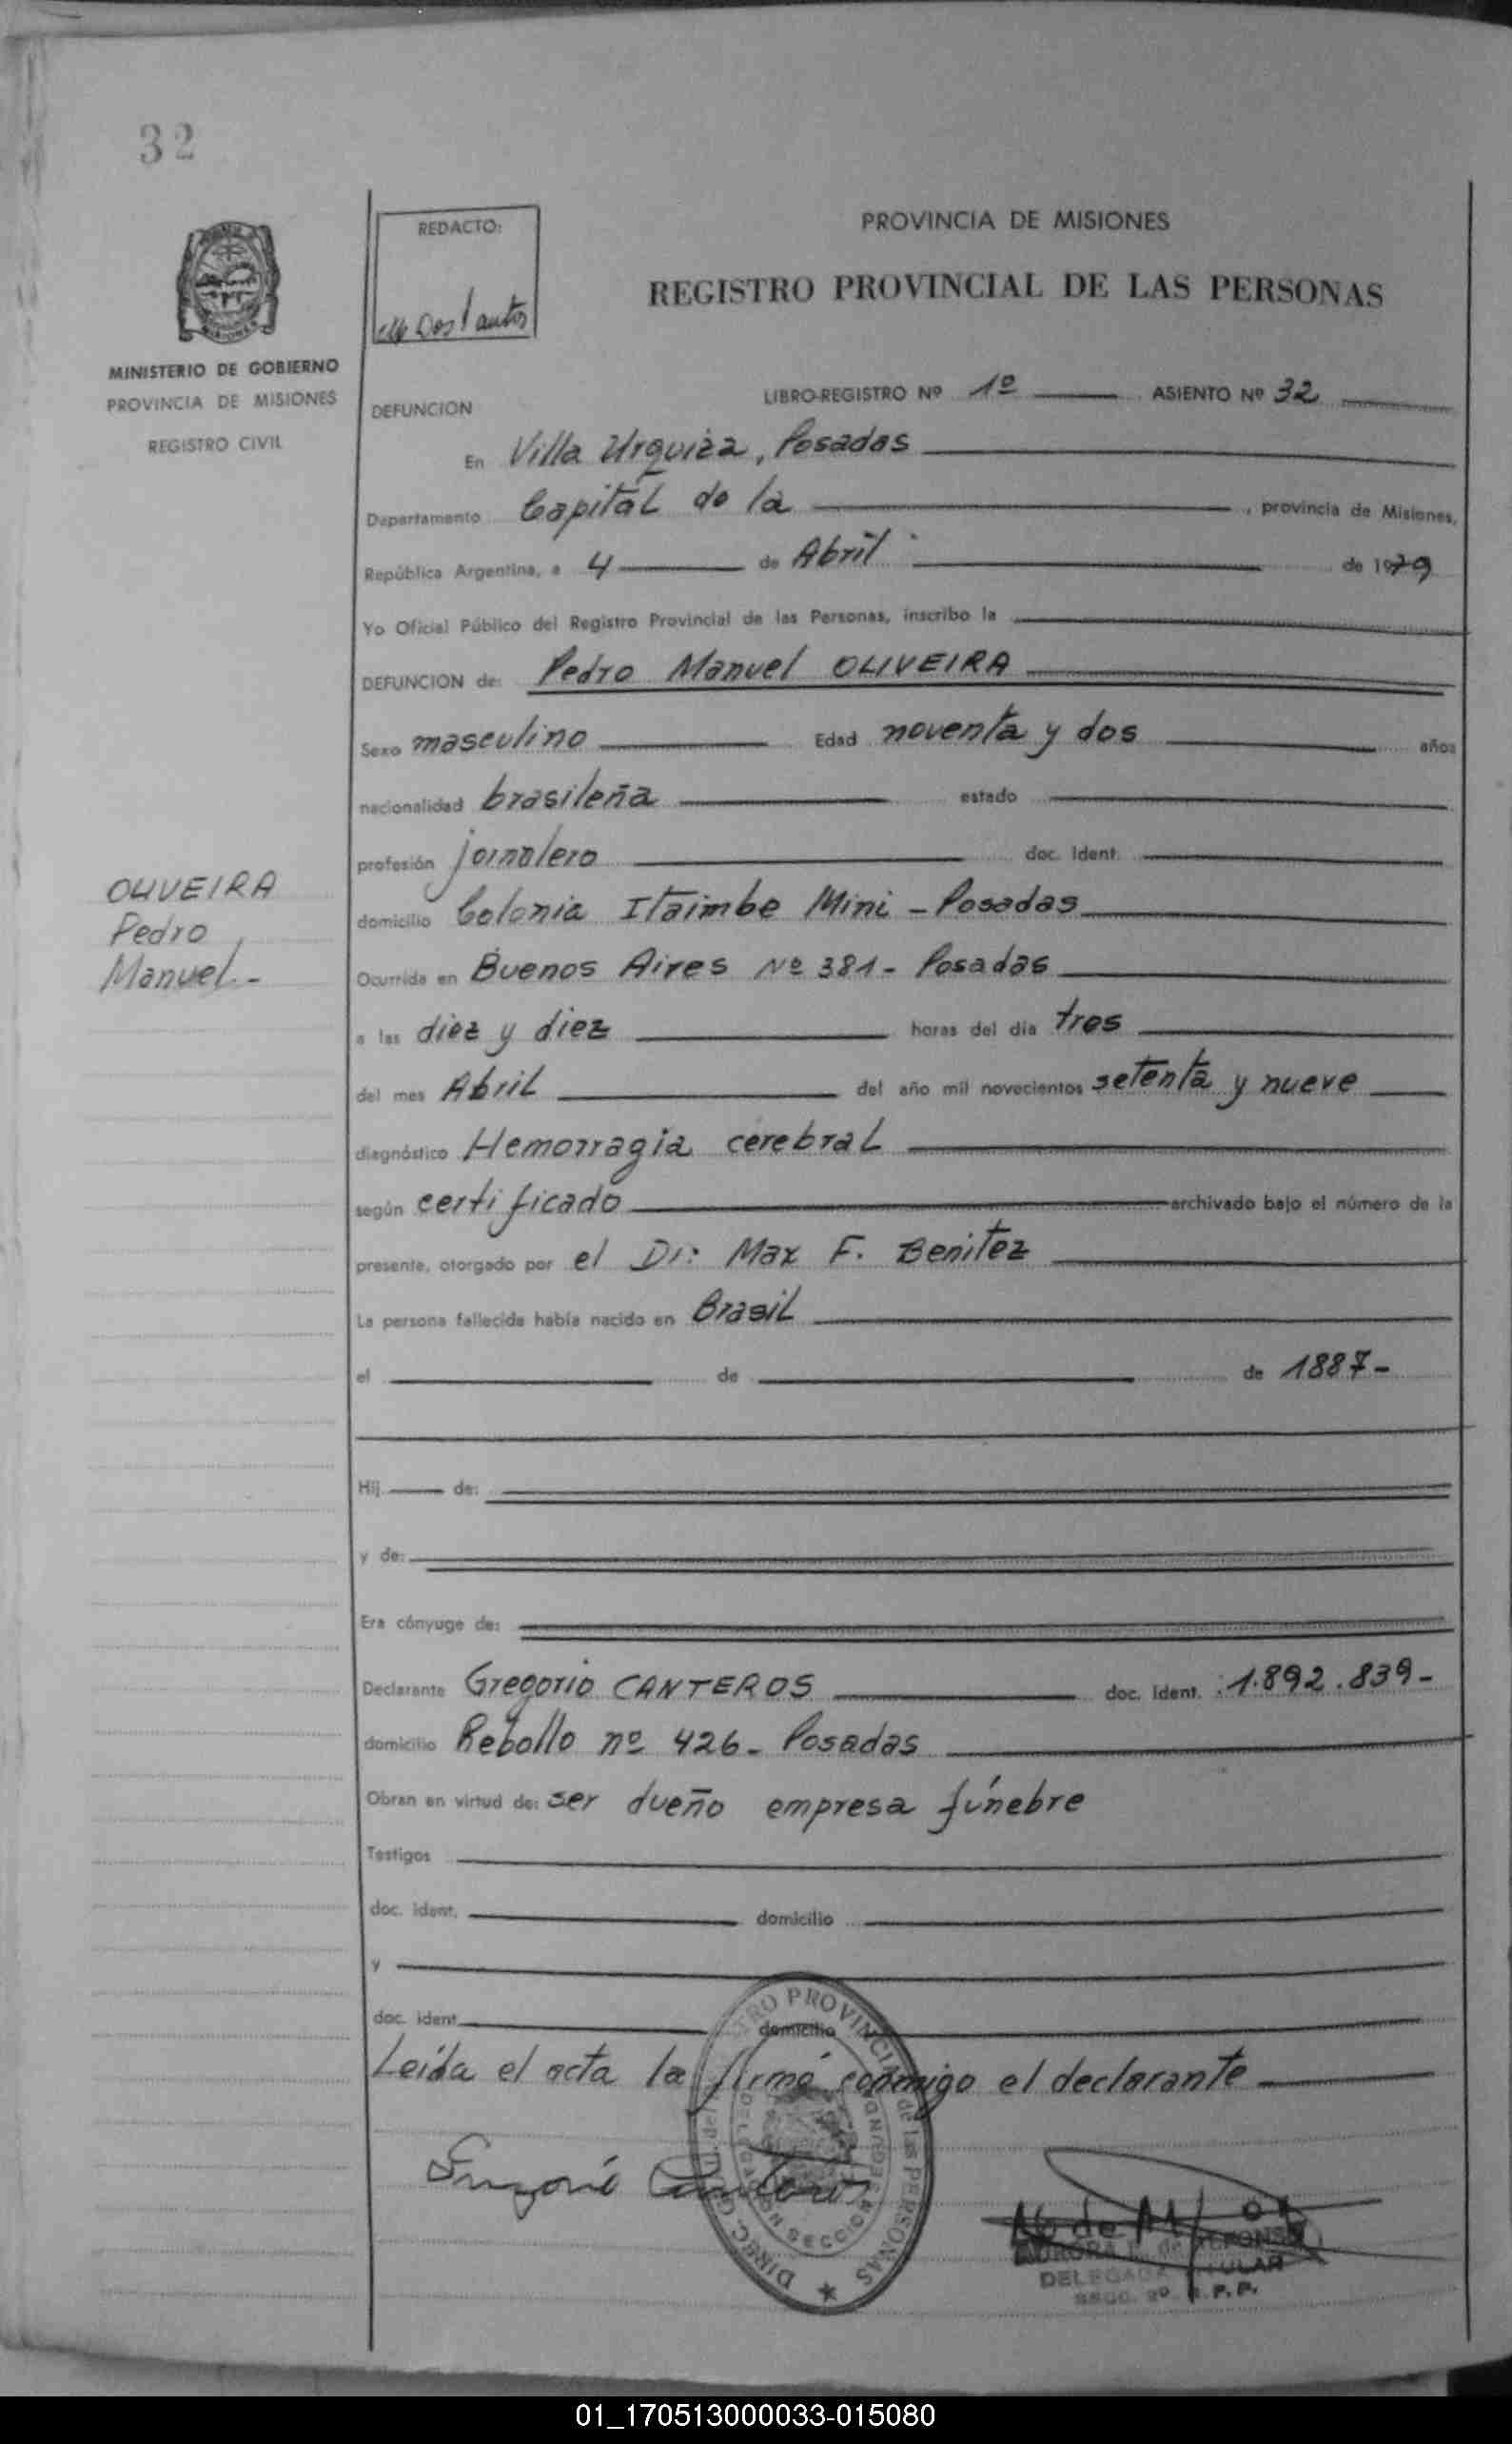 32
REDACTO:
PROVINCIA DE MISIONES
REGISTRO PROVINCIAL DE LAS PERSONAS
MISIONES
MINISTERIO DE GOBIERNO
PROVINCIA DE MISIONES
REGISTRO CIVIL
LIBRO-REGISTRO Nº 1º ASIENTO Nº 32
DEFUNCION
En Villa Urquiza, Posadas
Departamento Capital de la, provincia de Misiones,
República Argentina, a 4 de Abril de 1979
Yo Oficial Público del Registro Provincial de las Personas, inscribo la
DEFUNCION de: Pedro Manuel OLIVEIRA
Sexo masculino Edad noventa y dos años
nacionalidad brasileña estado
profesión jornalero doc. Ident.
OLIVEIRA
Pedro
Manuel.-
domicilio Colonia Itaimbe Mini - Posadas
Ocurrida en Buenos Aires Nº 381- Posadas
a las diez y diez horas del día tres
del mes Abril del año mil novecientos setenta y nueve
diagnóstico Hemorragia cerebral
según certificado archivado bajo el número de la
presente, otorgado por el Dr: Max F. Benitez
La persona fallecida había nacido en Brasil
el de de 1887-
Hij de:
y de:
Era cónyuge de:
Declarante Gregorio CANTEROS doc. Ident. 1.892.839-
domicilio Rebollo nº 426- Posadas
Obran en virtud de: ser dueño empresa fúnebre
Testigos
doc. Ident. domicilio
y
doc. Ident. domicilio
Leída el acta la firmó conmigo el declarante
Gregorio Canteros
DIREC. GRAL. del REGISTRO PROVINCIAL de las PERSONAS
AURORA de ALFONSO
DELEGADA TITULAR
01_170513000033-015080